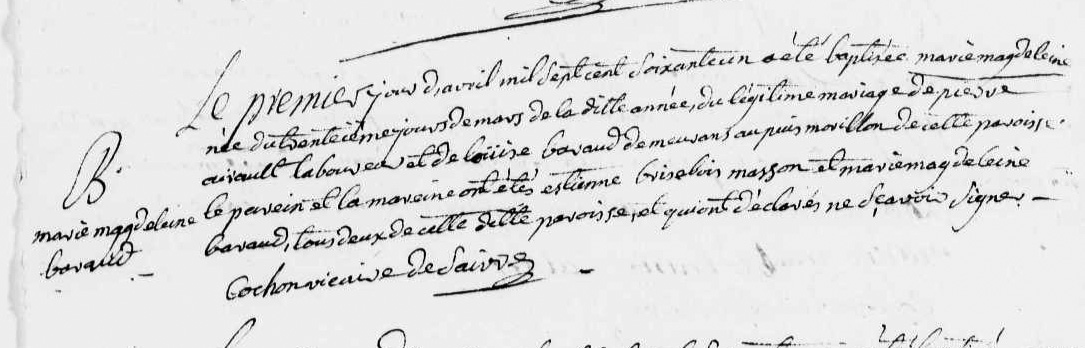 Le premier jour d'avril mil sept cent soixante un a été baptisée marie magdeleine
née du trentcième jours de mars de la ditte année, du légitime mariage de pierre
airault laboureur et de loüise baraud demeurans au puis morillon de cette paroisse.
B.
marie magdeleine
baraud
le parein et la mareine ont étés estienne brisebois masson et marie magdeleine
baraud, tous deux de cette ditte paroisse, et qui ont déclarés ne sçavoir signer. —
Cochon vicaire de Saivre